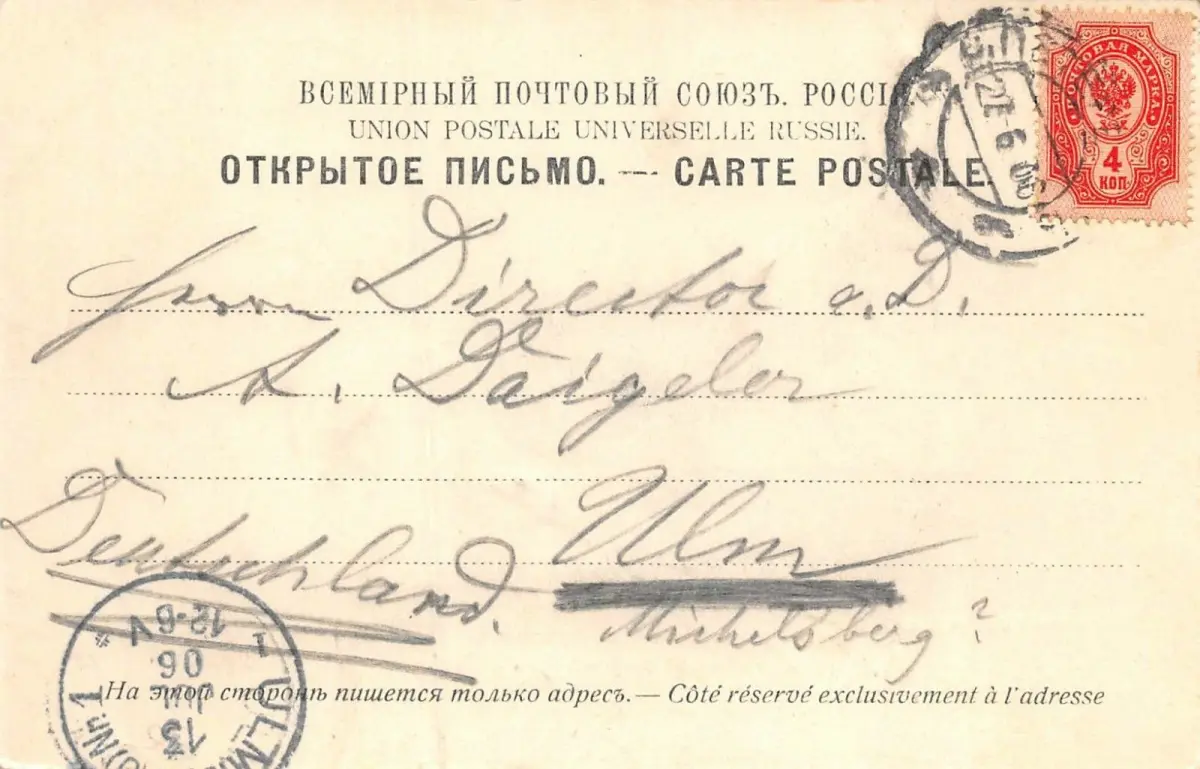 ВСЕМІРНЫЙ ПОЧТОВЫЙ СОЮЗЪ. РОССІЯ.
UNION POSTALE UNIVERSELLE RUSSIE.
ОТКРЫТОЕ ПИСЬМО. — CARTE POSTALE.
ПОЧТОВАЯ МАРКА
4
КОП.
6 06
Herrn Director a. D.
A. Daigeler
Ulm
Deutschland.
Michelsberg?
На этой сторонѣ пишется только адресъ. — Côté réservé exclusivement à l'adresse
1 ULM
13
06
12-6V
Nr. 1